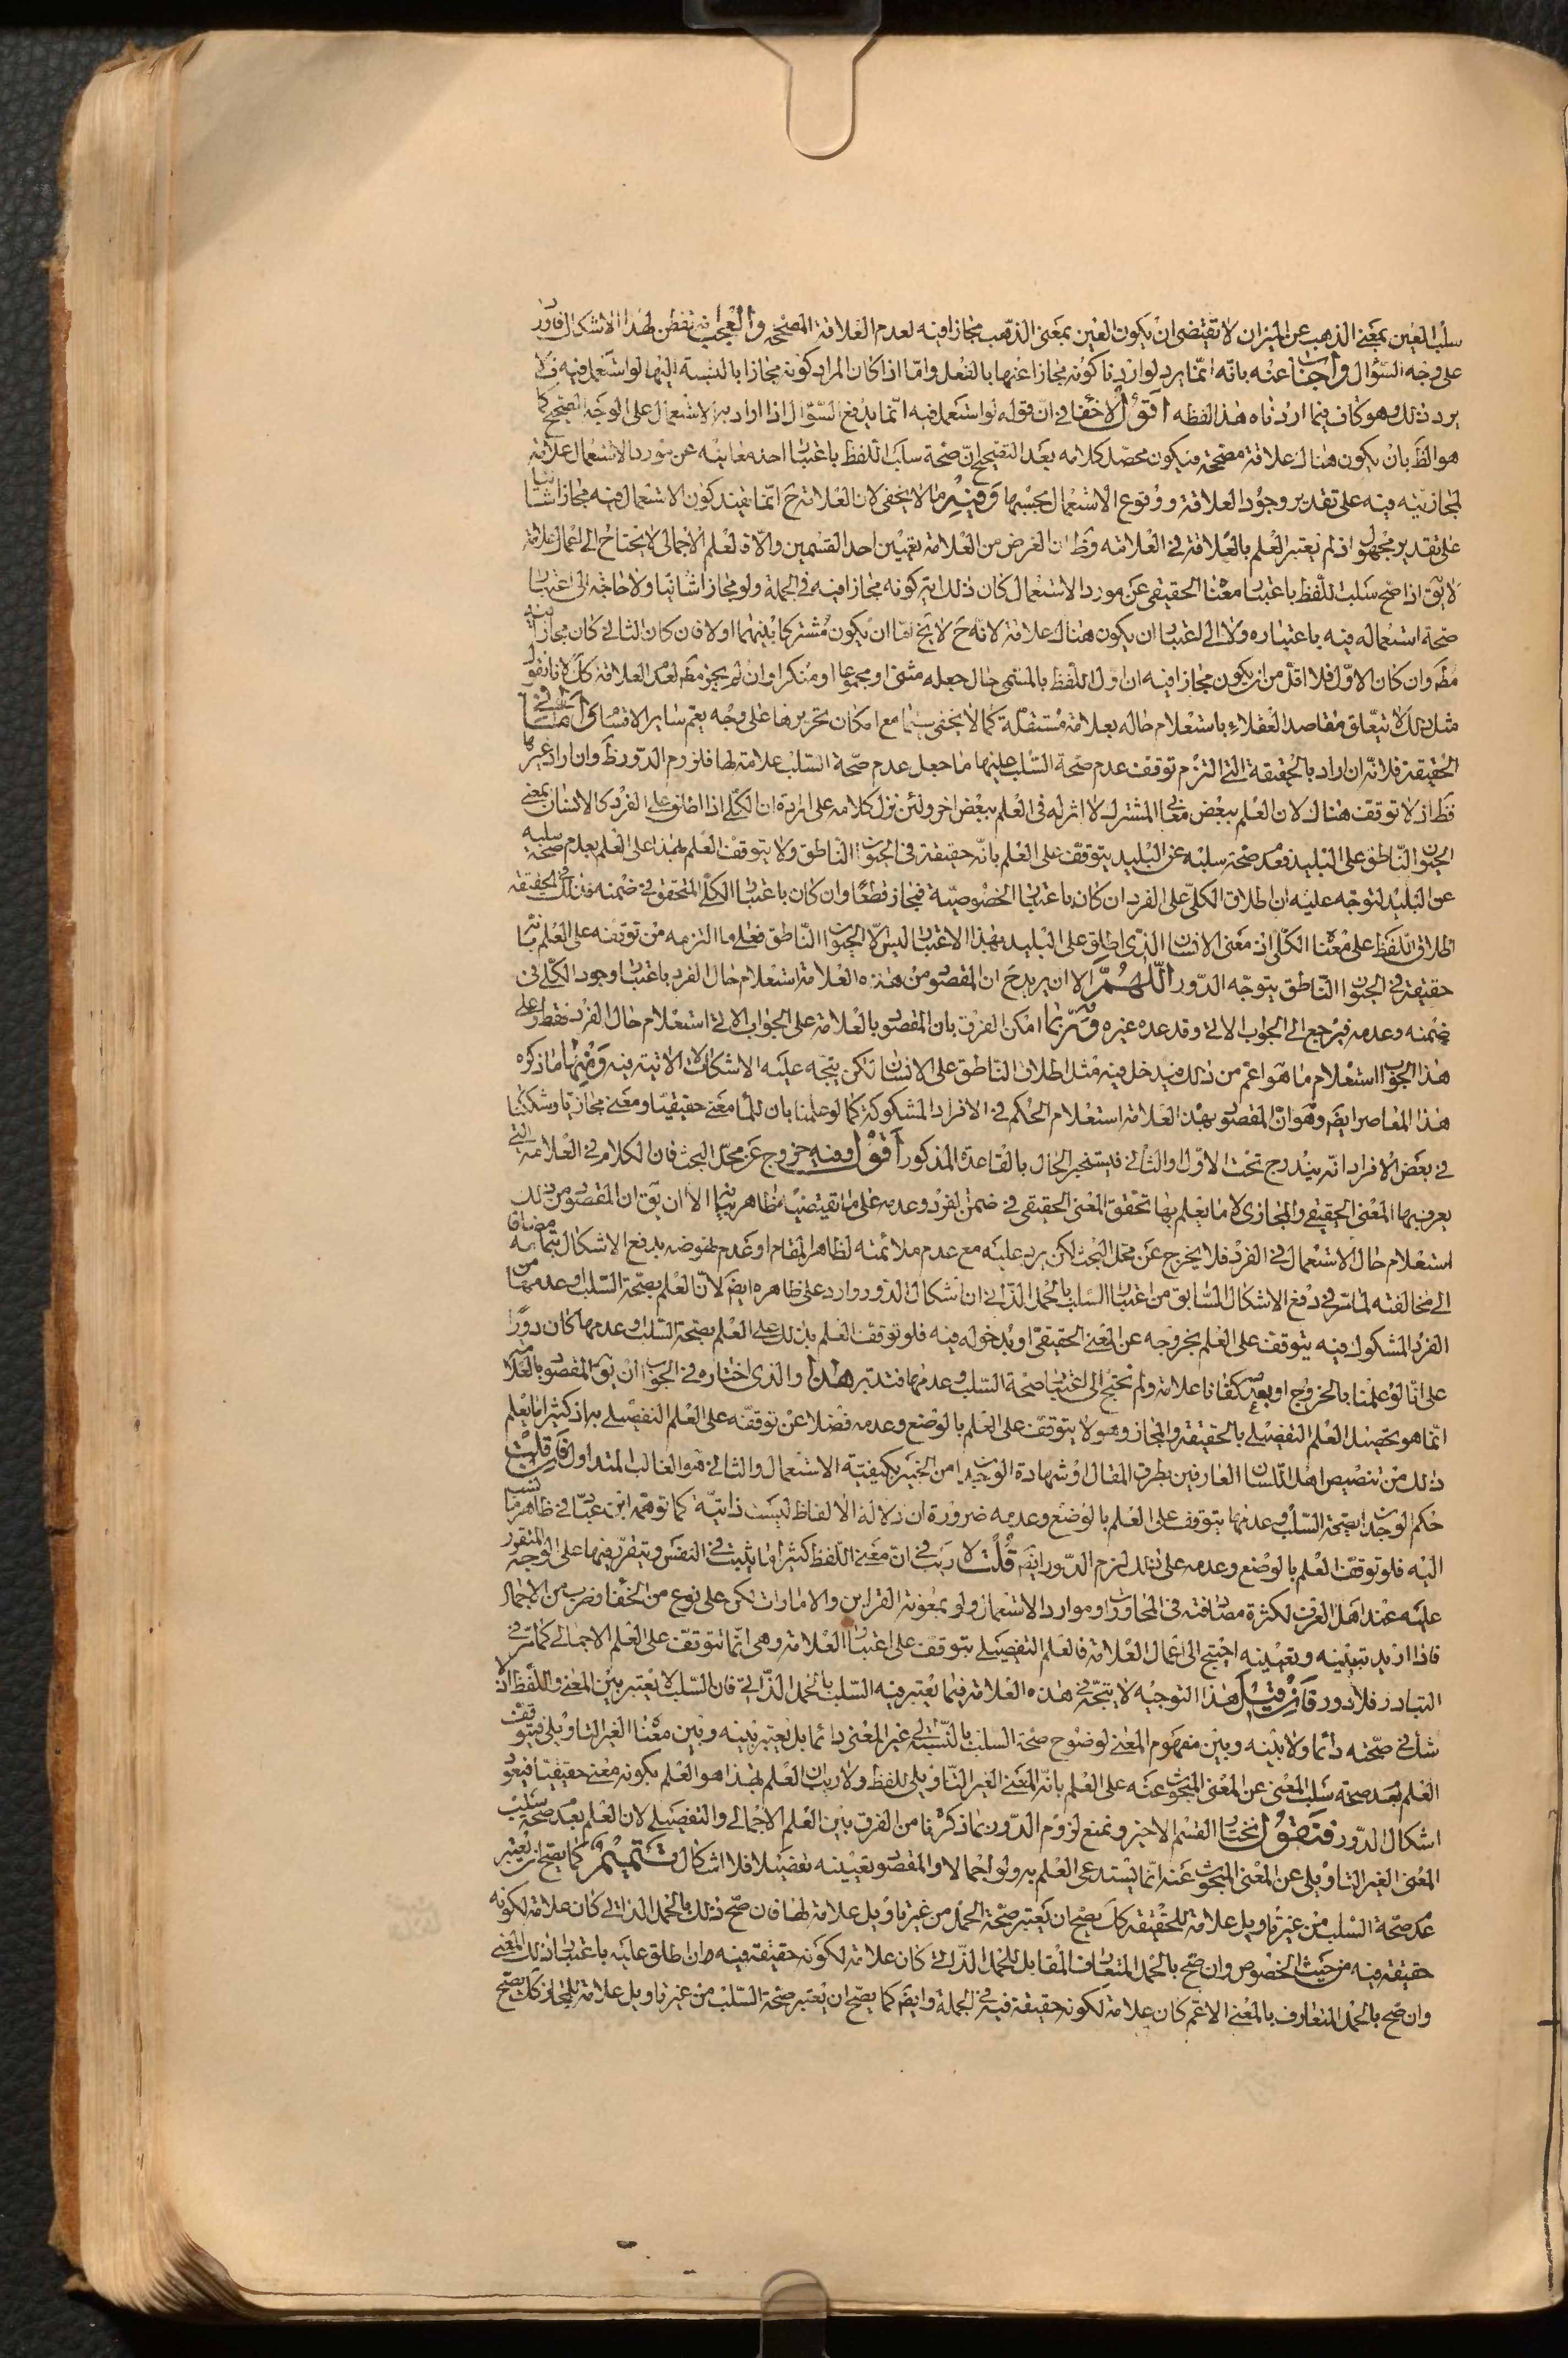 سلب العين بمعنى الذهب عن الميزان لا تقتضى ان يكون العين بمعنى الذهب مجازا فيه لعدم العلاقة المصححة والعجب انه تفطن لهذا الاشكال فاورد
على وجه السؤال واجاب عنه بانه انما يرد لو اردنا كونه مجازا عنها بالفعل واما اذا كان المراد كونه مجازا بالنسبة اليها لو استعمل فيه فلا
يرد ذلك وهو كاف فيما اردناه هذا لفظه اقول لا خفاء فى ان قوله لو استعمل فيه انما يدفع السؤال اذا اراد به الاستعمال على الوجه الصحيح كما
هو الظ بان يكون هناك علاقة مصححة فيكون محصل كلامه بعد التصحيح ان صحة سلب اللفظ باعتبار احد معانيه عن مورد الاستعمال علامة
لمجازيته فيه على تقدير وجود العلاقة ووقوع الاستعمال بحسبها وفيه ما لا يخفى لان العلامة ح انما يفيد كون الاستعمال فيه مجازا شانيا
على تقدير مجهول اذ لم يعتبر العلم بالعلاقة فى العلامة وظ ان الغرض من العلامة تعيين احد القسمين والا فالعلم الاجمالى لا يحتاج الى اعمال علامة
لا يق اذا صح سلب اللفظ باعتبار معناه الحقيقى عن مورد الاستعمال كان ذلك اية كونه مجازا فيه فى الجملة ولو مجازا شانيا ولا حاجة الى اعتبار
صحة استعماله فيه باعتباره ولا الى اعتبار ان يكون هناك علاقة لانه ح لا يخ اما ان يكون مشتركا بينهما اولا فان كان الثانى كان مجازا فيه
مط وان كان الاول فلا اقل من ان يكون مجازا فيه ان اول اللفظ بالمسمى حال جعله مثنى او مجموعا او منكرا وان لم يجز مط لعدم العلاقة كل لانا نقول
مثل ذلك لا يتعلق مقاصد العقلاء باستعلام حاله بعلامة مستقلة كما لا يخفى سيما مع امكان تحريرها على وجه يعم ساير الاقسام واما فى
الحقيقة فلانه ان اراد بالحقيقة التى التزم توقف عدم صحة السلب عليها ما جعل عدم صحة السلب علامة لها فلزوم الدور ظ وان اراد غيرها
فظ اذ لا توقف هناك لان العلم ببعض معانى المشترك لا اثر له فى العلم ببعض اخر ولئن نزل كلامه على ارادة ان الكلى اذا اطلق على الفرد كالانسان بمعنى
الحيوان الناطق على البليد فعدم صحة سلبه عن البليد يتوقف على العلم بانه حقيقة فى الحيوان الناطق ولا يتوقف العلم بهذا على العلم بعدم صحة سلبه
عن البليد لتوجه عليه ان اطلاق الكلى على الفرد ان كان باعتبار الخصوصية فمجاز قطعا وان كان باعتبار الكلى المتحقق فى ضمنه فذلك فى الحقيقة
اطلاق اللفظ على معناه الكلى اذ معنى الانسان الذى اطلق على البليد بهذا الاعتبار ليس الا الحيوان الناطق فعلى ما التزمه من توقفه على العلم بانه
حقيقة فى الحيوان الناطق يتوجه الدور اللهم الا ان يريد ح ان المقصود من هذه العلامة استعلام حال الفرد باعتبار وجود الكلى فى
ضمنه وعدمه فيرجع الى الجواب الاتى وقد عده غيره وربما امكن الفرق بان المقصود بالعلامة على الجواب الاتى استعلام حال الفرد فقط وعلى
هذا الجواب استعلام ما هو اعم من ذلك فيدخل فيه مثل اطلاق الناطق على الانسان لكن يتجه عليه الاشكالات الاتية فيه ومنها ما ذكره
هذا المعاصر ايض وهو ان المقصود بهذه العلامة استعلام الحكم فى الافراد المشكوكة كما لو علمنا بان للماء معنى حقيقيا ومعنى مجازيا وشككنا
فى بعض الافراد انه يندرج تحت الاول او الثانى فيستخبر الحال بالقاعدة المذكورة اقول وفيه خروج عن محل البحث فان الكلام فى العلامة التى
يعرف بها المعنى الحقيقى والمجازى لا ما يعلم بها تحقق المعنى الحقيقى فى ضمن الفرد وعدمه على ما تقتضيه ظاهر بيانه الا ان يق ان المقصود من ذلك
استعلام حال الاستعمال فى الفرد فلا يخرج عن محل البحث لكن يرد عليه مع عدم ملائمته لظاهر المقام او عدم نهوضه بدفع الاشكال بتمامه مضافا
الى مخالفته لما مر فى دفع الاشكال السابق من اعتبار السلب بالحمل الذاتى ان اشكال الدور وارد على ظاهره ايض لان العلم بصحة السلب وعدمها من
الفرد المشكوك فيه يتوقف على العلم بخروجه عن المعنى الحقيقى او بدخوله فيه فلو توقف العلم بذلك على العلم بصحة السلب وعدمها كان دورا
على انا لو علمنا بالخروج او بعدمه كفانا علامة ولم نحتج الى اعتبار صحة السلب وعدمها فتدبر هذا والذى اختاره فى الجواب ان يق المقصود بالعلامة
انما هو تحصيل العلم التفصيلى بالحقيقة والمجاز وهو لا يتوقف على العلم بالوضع وعدمه فضلا عن توقفه على العلم التفصيلى به اذ كثيرا ما يعلم
ذلك من تنصيص اهل اللسان العارفين بطرق المقال او شهادة الوجدان الخبير بكيفية الاستعمال والثانى هو الغالب المتداول فان قلت
حكم الوجدان بصحة السلب وعدمها يتوقف على العلم بالوضع وعدمه ضرورة ان دلالة الالفاظ ليست ذاتية كما توهمه ابن عباد فى ظاهر ما نسب
اليه فلو توقف العلم بالوضع وعدمه على ذلك لزم الدور ايض قلت لا ريب فى ان معنى اللفظ كثيرا ما يثبت فى النفس ويتقرر فيها على الوجه المتقرر
عليه عند اهل العرف لكثرة مصادفته فى المحاورات او موارد الاستعمال ولو بمعونة القراين والامارات لكن على نوع من الخفاء وضرب من الاجمال
فاذا اريد تبيينه وتعيينه احتيج الى اعمال العلامة فالعلم التفصيلى يتوقف على اعتبار العلامة وهى انما تتوقف على العلم الاجمالى كما مر فى
التبادر فلا دور فان قيل هذا التوجيه لا يتجه فى هذه العلامة فيما يعتبر فيه السلب بالحمل الذاتى فان السلب لا يعتبر بين المعنى واللفظ اذ لا
شك فى صحته دائما ولا بينه وبين مفهوم المعنى لوضوح صحة السلب بالنسبة الى غير المعنى دائما بل يعتبر بينه وبين معناه الغير التاويلى فيتوقف
العلم بعدم صحة سلب المعنى عن المعنى المبحوث عنه على العلم بانه المعنى الغير التاويلى للفظ ولا ريب ان العلم بهذا هو العلم بكونه معنى حقيقيا فيعود
اشكال الدور فنقول نختار القسم الاخير ونمنع لزوم الدور بما ذكرنا من الفرق بين العلم الاجمالى والتفصيلى لان العلم بعدم صحة سلب
المعنى الغير التاويلى عن المعنى المبحوث عنه انما يستدعى العلم به ولو اجمالا والمقصود تعيينه تفصيلا فلا اشكال تتميم كما يصح ان يعتبر
عدم صحة السلب من غير تاويل علامة للحقيقة كك يصح ان يعتبر صحة الحمل من غير تاويل علامة لها فان صح ذلك بالحمل الذاتى كان علامة لكونه
حقيقة فيه من حيث الخصوص وان صح بالحمل المتعارف المقابل للحمل الذاتى كان علامة لكونه حقيقة فيه ان اطلق عليه باعتبار ذلك المعنى
وان صح بالحمل المتعارف بالمعنى الاعم كان علامة لكونه حقيقة فيه فى الجملة وايض كما يصح ان يعتبر صحة السلب من غير تاويل علامة للمجاز كك يصح